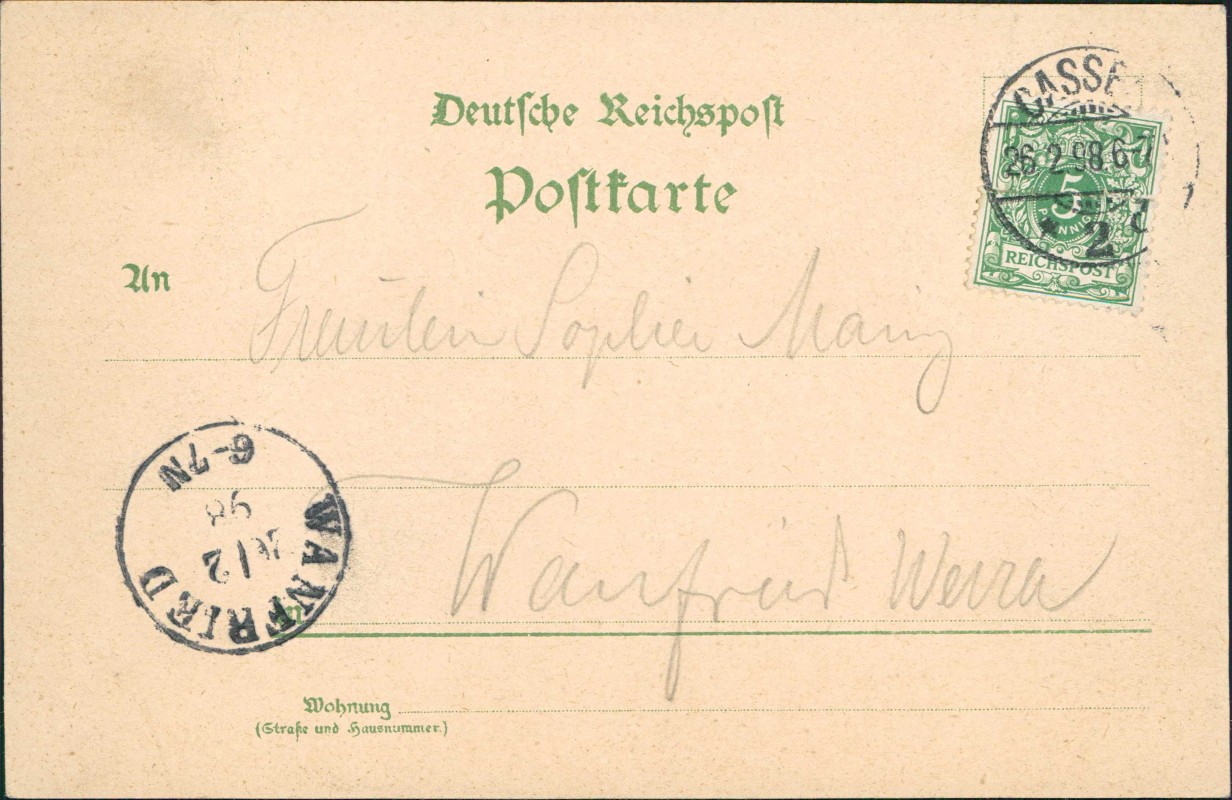 Deutsche Reichspost
Postkarte
CASSEL
26.2.98.6-7
* 2
5
PFENNIG
REICHSPOST
An
Fräulein Sophie
WANFRIED
26/2
98
6-7N
Wanfried Werra
in
Wohnung
(Straße und Hausnummer.)